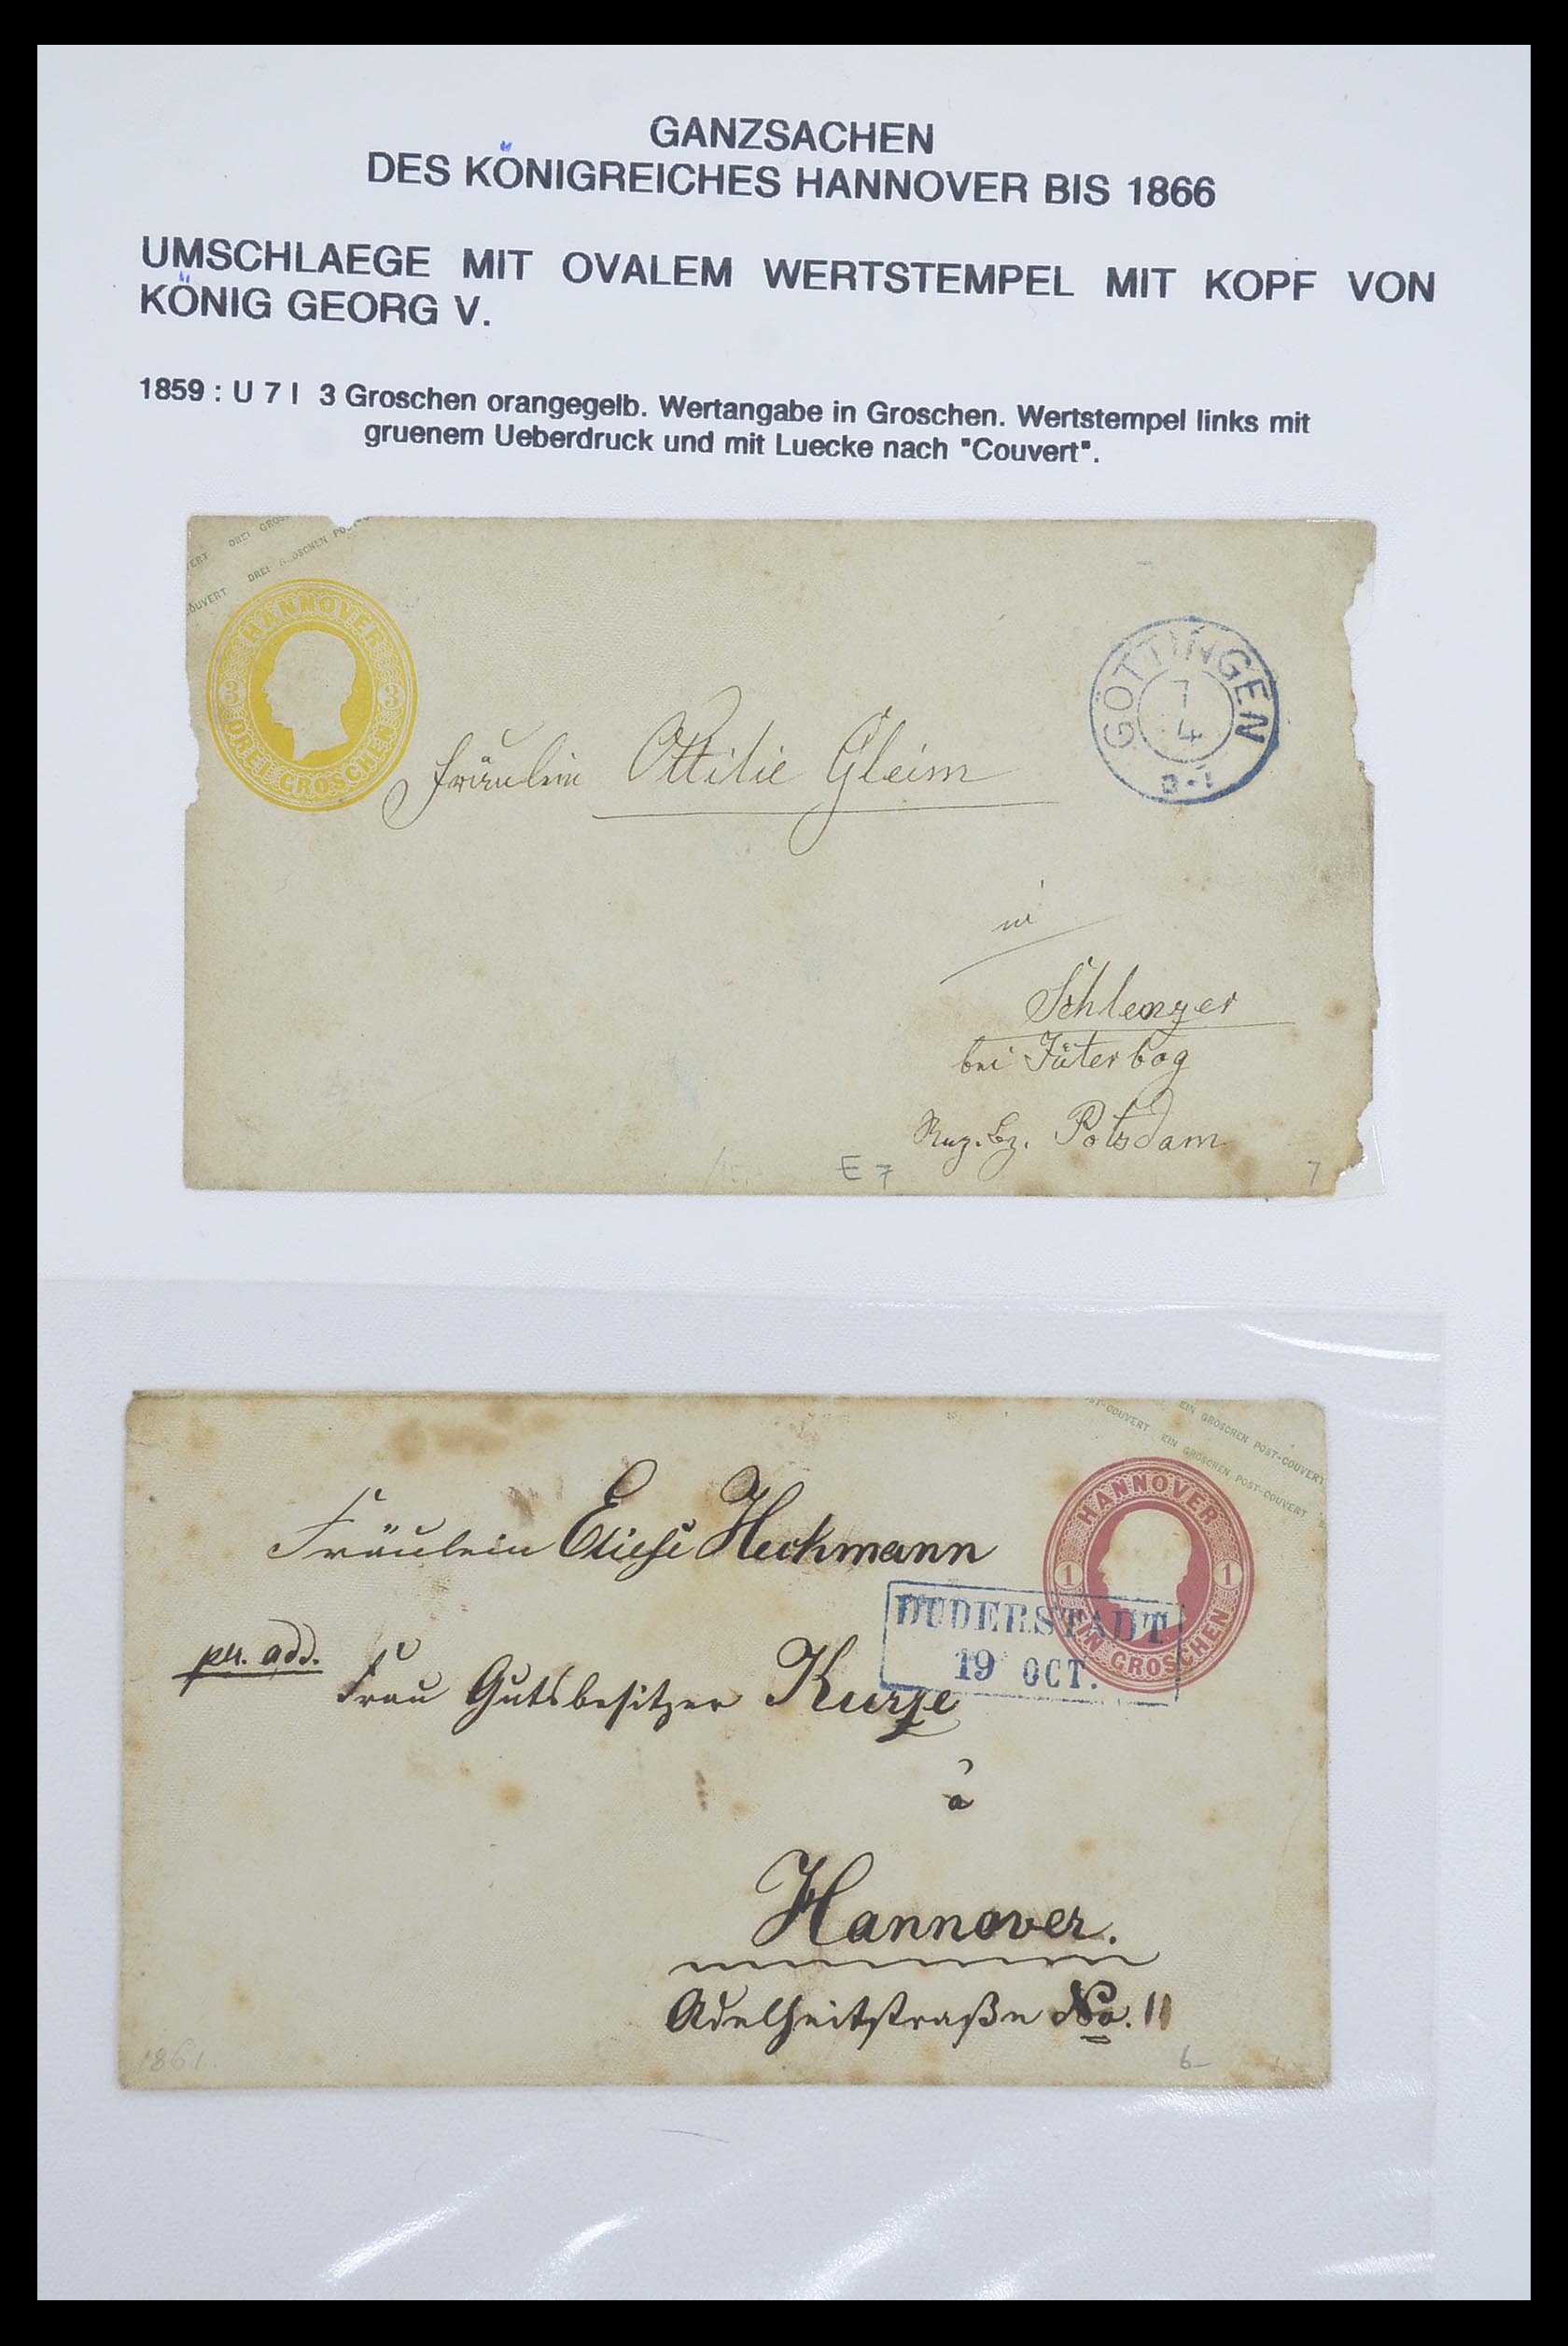 GANZSACHEN
DES KÖNIGREICHES HANNOVER BIS 1866
UMSCHLAEGE MIT OVALEM WERTSTEMPEL MIT KOPF VON
KÖNIG GEORG V.
1859 : U 7 I 3 Groschen orangegelb. Wertangabe in Groschen. Wertstempel links mit
gruenem Ueberdruck und mit Luecke nach "Couvert".
ERT DREI GROS
OUVERT DREI GROSCHEN PO
HANNOVER
3 3
DREI GROSCHEN
GÖTTINGEN
7
4
Fräulein Ottilie Gleim
in
Schlenzer
bei Jüterbog
Reg. Bz. Potsdam
E 7
7
EIN GROSCHEN POST-COUVERT
ST-COUVERT EIN GROSCHEN POST-COUVERT
HANNOVER
1 1
EIN GROSCHEN
Fräulein Heckmann
DUDERSTADT
19 OCT.
pr. add.
Frau Gutsbesitzer Kurze
à
Hannover.
Adelheitstraße No. 11
1861.
6-